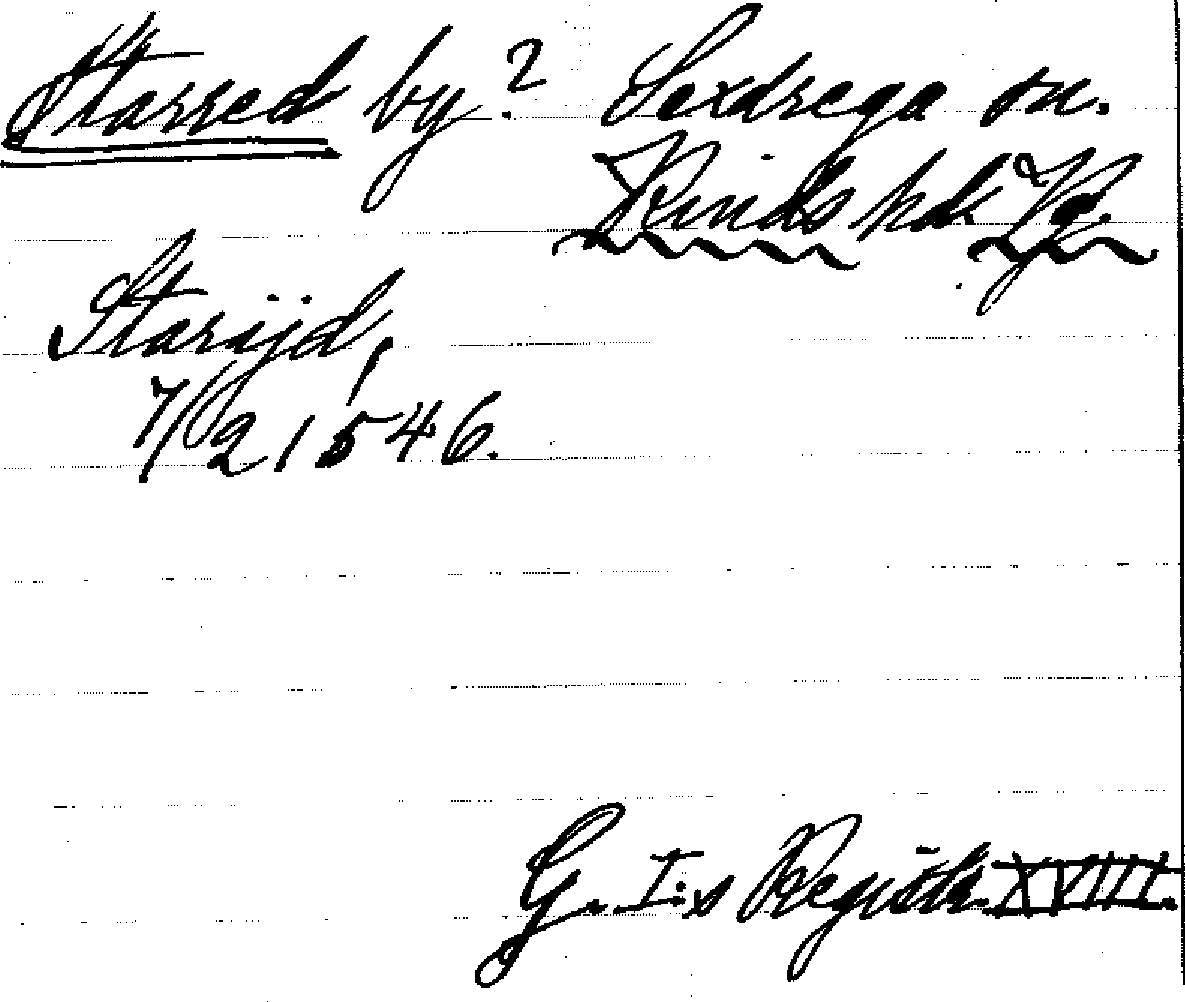 Starred by.? Sexdrega sn.
Kinds hd. Vg.
Starijd,
7/2 1546.
G. I:s Registr. XVIII.